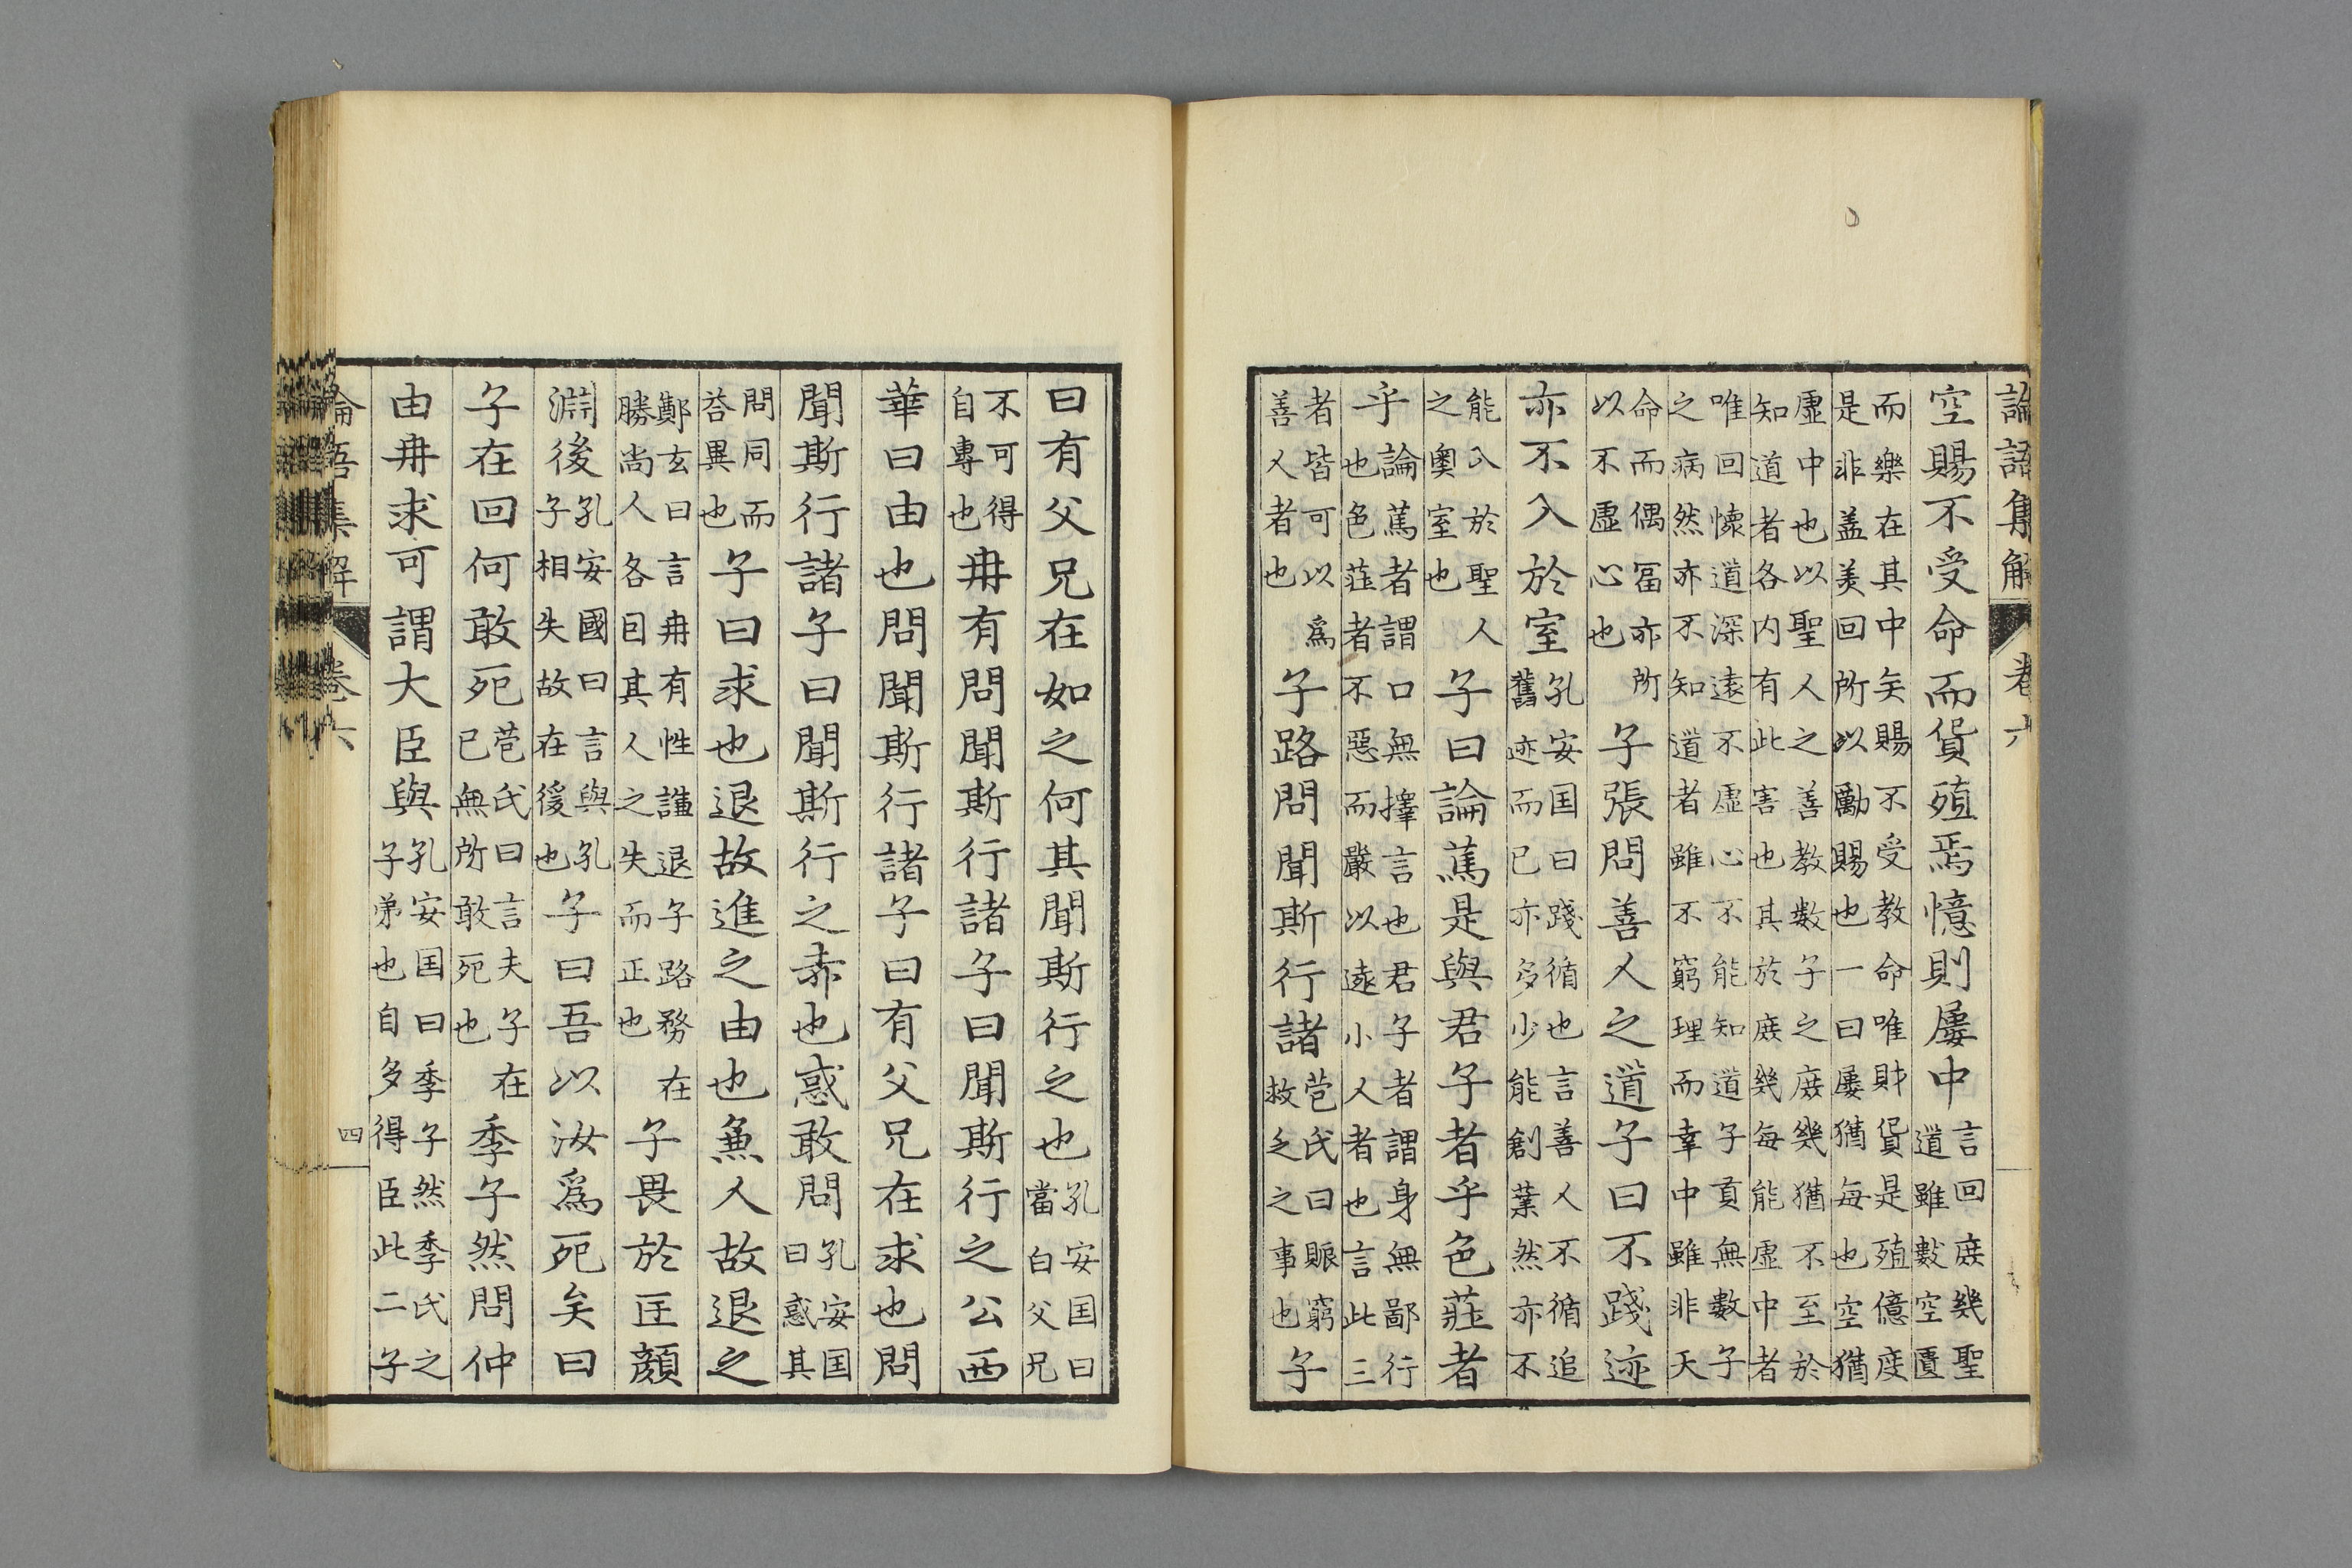 論語集解　卷六
空賜不受命而貨殖焉憶則屢中言回庶幾聖道雖數空匱
而樂在其中矣賜不受教命唯財貨是殖億度
是非盖美回所以勵賜也一曰屢猶每也空猶
虛中也以聖人之善教數子之庶幾猶不至於
知道者各内有此害也其於庶幾每能虛中者
唯回懷道深遠不虛心不能知道子貢無數子
之病然亦不知道者雖不窮理而幸中雖非天
命而偶冨亦所以不虛心也子張問善人之道子曰不踐迹
亦不入於室孔安国曰踐循也言善人不循追舊迹而已亦多少能創業然亦不
能入於聖人之奧室也子曰論篤是與君子者乎色莊者
乎論篤者謂口無擇言也君子者謂身無鄙行也色莊者不惡而嚴以遠小人者也言此三
者皆可以爲善人者也子路問聞斯行諸苞氏曰賑窮救乏之事也子
曰有父兄在如之何其聞斯行之也孔安国曰當白父兄
不可得自專也冉有問聞斯行諸子曰聞斯行之公西
華曰由也問聞斯行諸子曰有父兄在求也問
聞斯行諸子曰聞斯行之赤也惑敢問孔安国曰惑其
問同而荅異也子曰求也退故進之由也兼人故退之
鄭玄曰言冉有性謙退子路務在勝尚人各因其人之失而正也子畏於匡顏
淵後孔安國曰言與孔子相失故在後也子曰吾以汝爲死矣曰
子在回何敢死苞氏曰言夫子在已無所敢死也季子然問仲
由冉求可謂大臣與孔安国曰季子然季氏之子弟也自多得臣此二子
論語集解　卷六　四